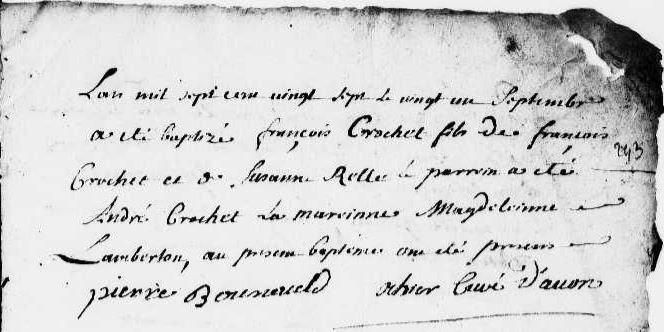 Lan mil sept cent vingt sept le vingt un Septembre
a eté baptizé françois Crochet fils de françois
Crochet et de Susanne Relle le parrein a eté
André Crochet la mareinne Magdeleinne
Lamberton, au present baptéme ont eté presens
pierre curé D'avon